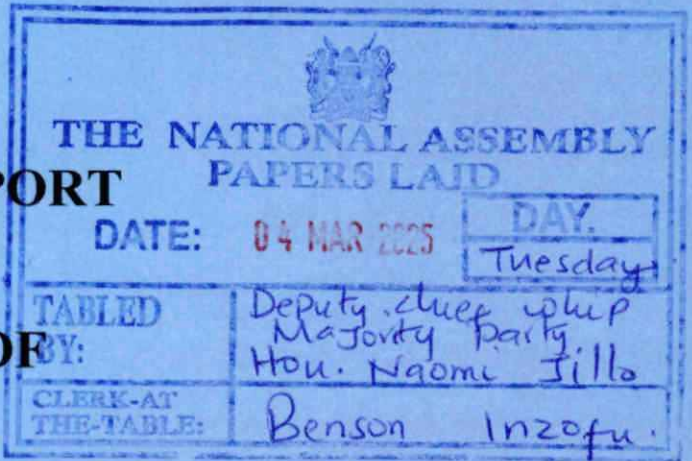 THE NATIONAL ASSEMBLY
PAPERS LAID
PORT
DATE: 04 MAR 2025
DAY.
Tuesday
TABLED BY:
Deputy chief whip
Majority Party
Hon. Naomi Jillo
OF
CLERK-AT THE-TABLE:
Benson Inzofu.